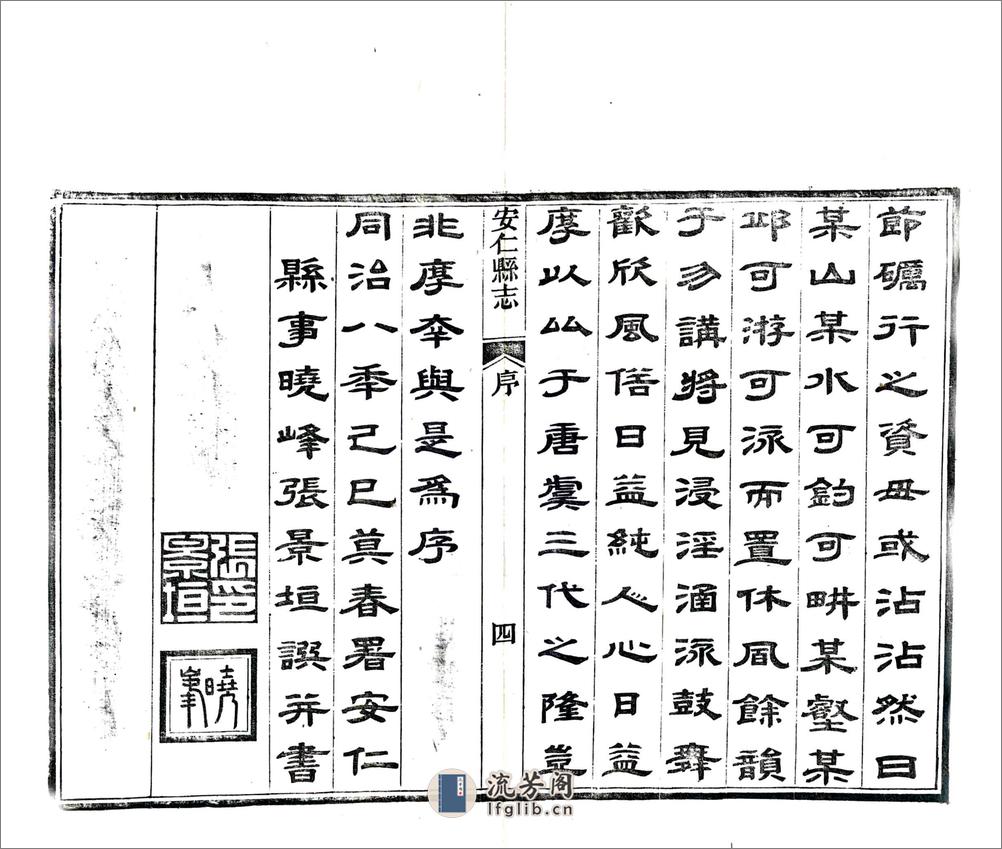 節礪行之資毋或沾沾然曰
某山某水可釣可畊某壑某
邱可游可泳而置休風餘韻
于勿講將見浸淫涵泳鼓舞
歡欣風俗日益純人心日益
厚以公于唐虞三代之隆豈
安仁縣志 序 四
非厚幸與是爲序
同治八年己巳莫春署安仁
縣事曉峰張景垣譔并書
張景垣印
曉峯
流芳阁
lfglib.cn